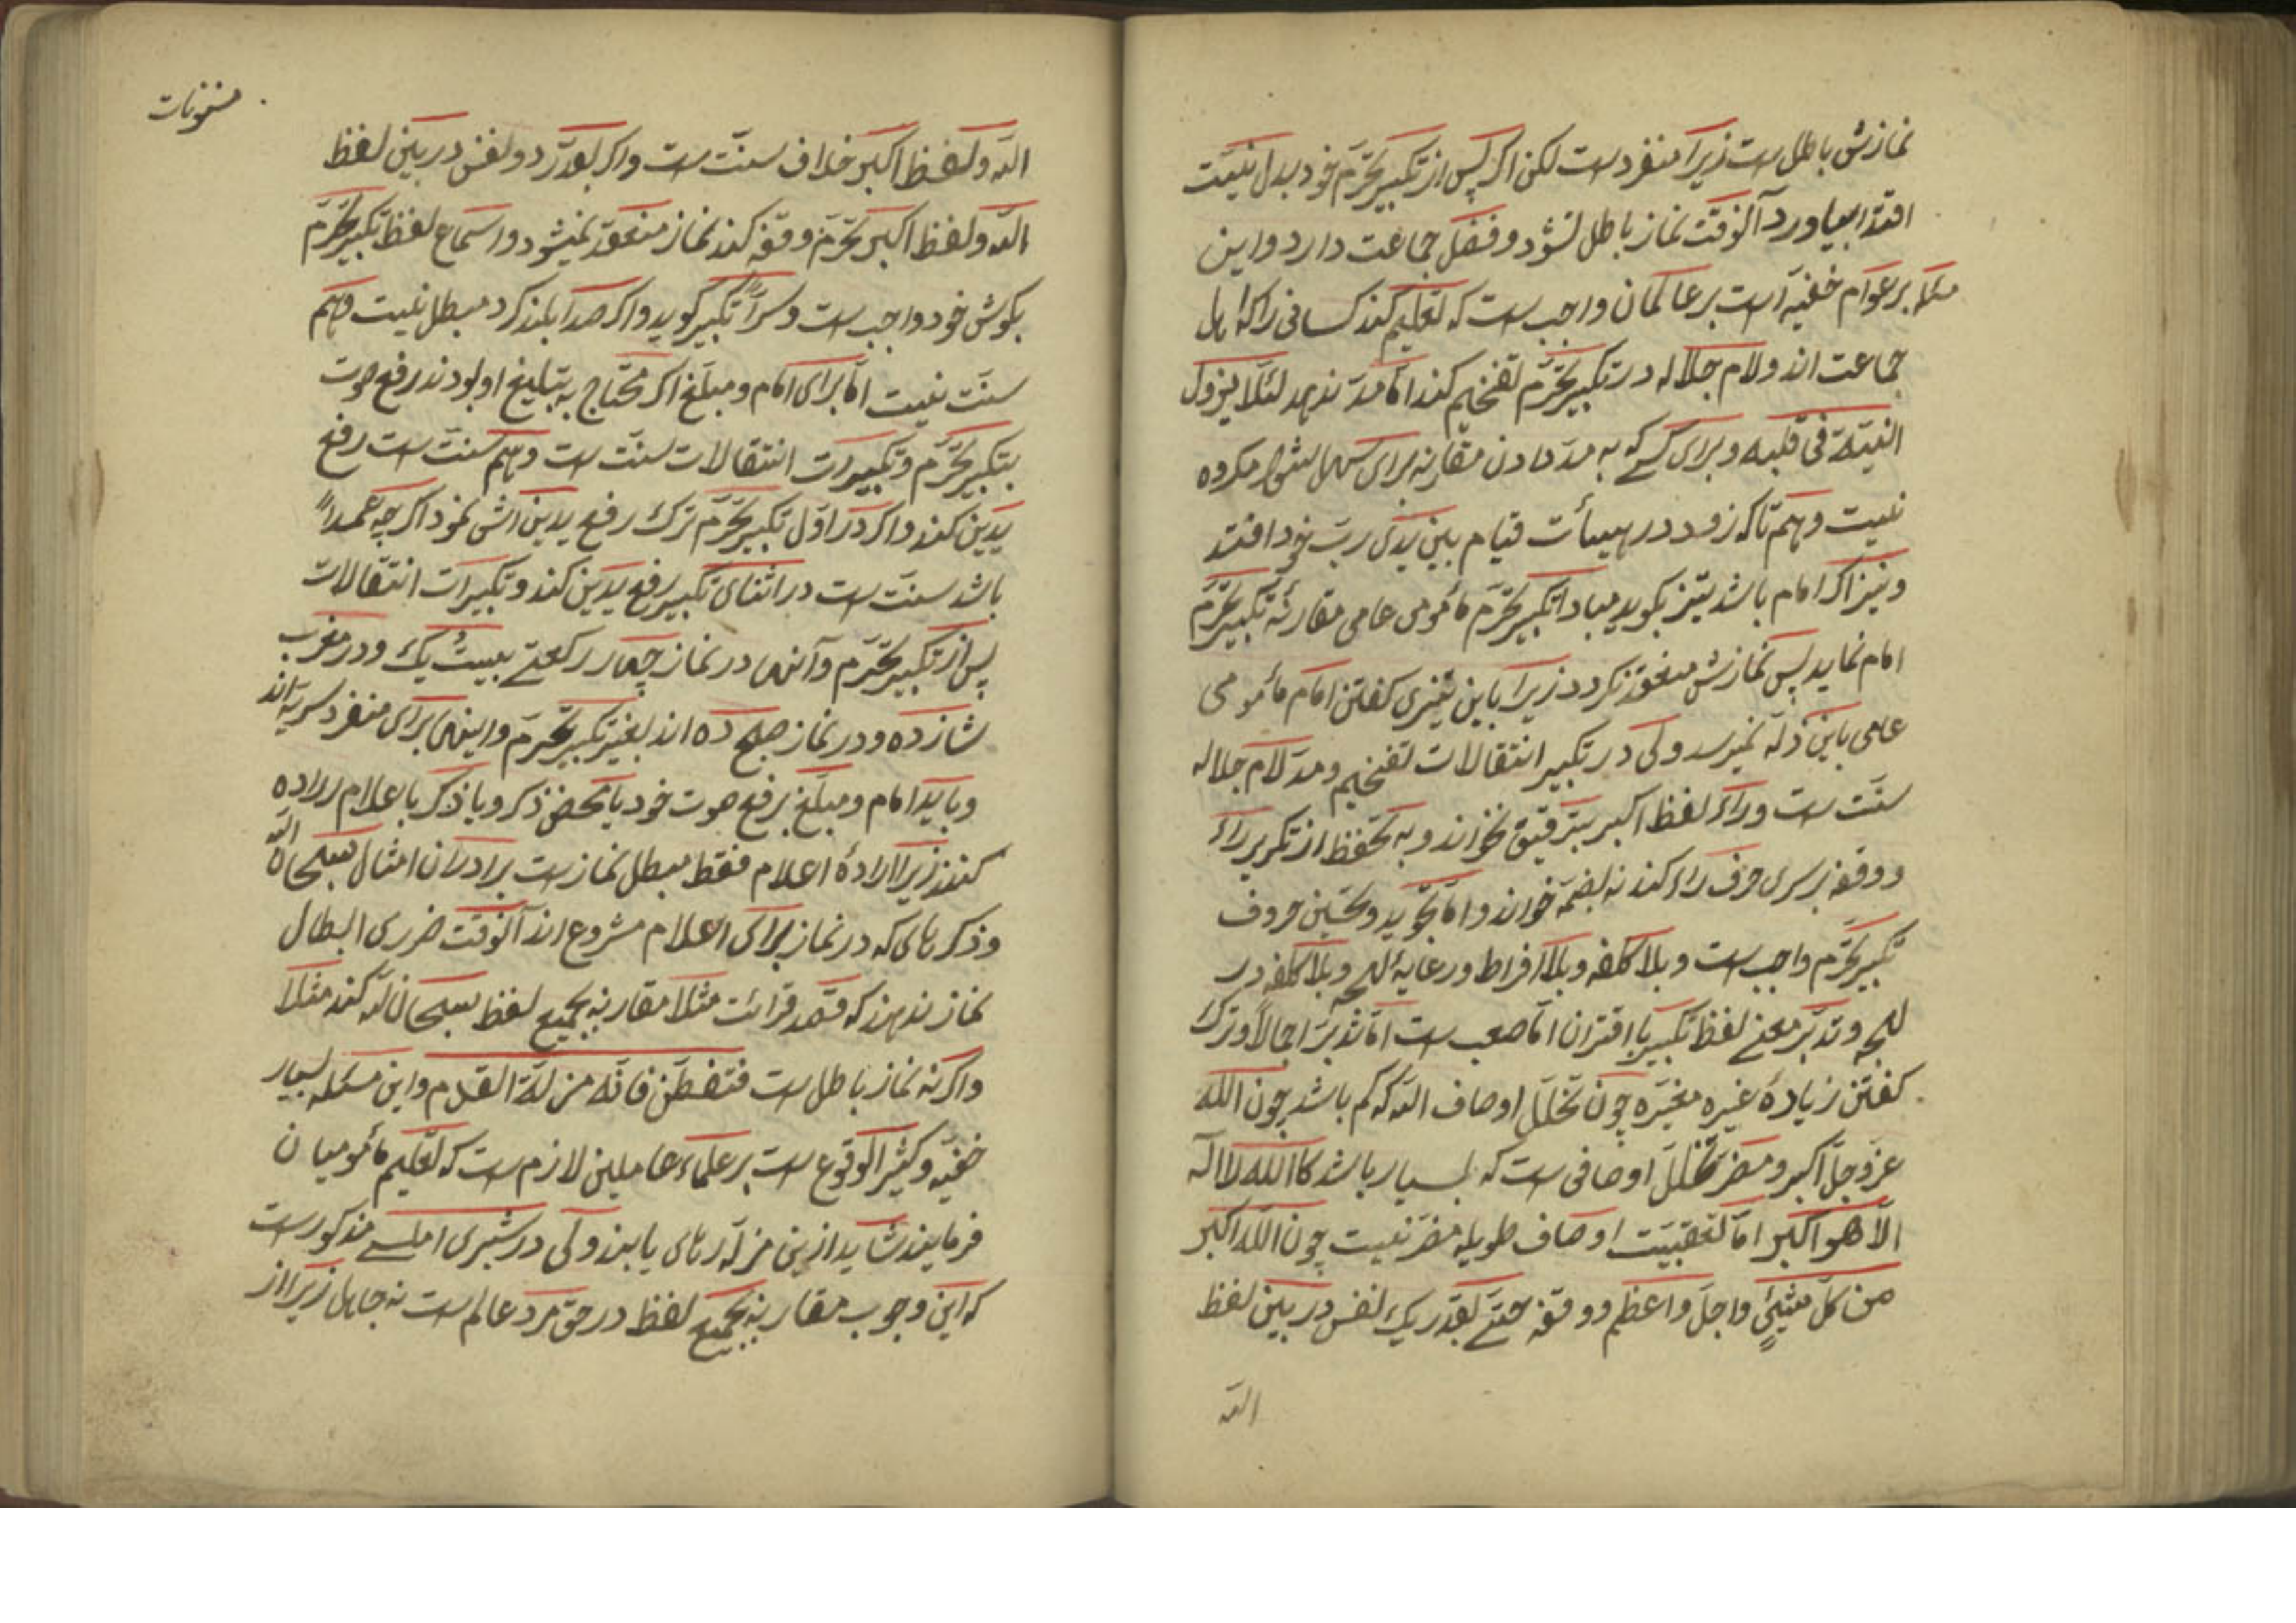 نمازش باطل است زیرا منفردست لکن اگر پس از تکبیر تحرّم خود بدل نیّت
اقتدا بیاورد آنوقت نماز باطل نشود و فضل جماعت دارد و این
مسئله بر عوام خفیّه است بر عالمان واجب است که تعلیم کند کسانی را که اهل
جماعت اند و لام جلاله در تکبیر تحرّم تفخیم کند امّا مدّ ندهد لئلّا یزول
النیّة فی قلبه و برای کسے که به مدّ دادن مقارنه برای سهل بشود مکروه
نیست و هم تا که زود در هیئات قیام بین یدی ربّ خود افتد
و نیز اگر امام باشد تیز بگوید مبادا تکبیر تحرّم مأمومی عامی مقارنهٔ تکبیر تحرّم
امام نماید پس نمازش منعقد نگردد زیرا باین تیزی گفتن امام مأمومی
عامی باین ذلّه نمیرسد ولی در تکبیر انتقالات تفخیم و مدّ لام جلاله
سنّت است و راء لفظ اکبر بترقیق بخواند و به تحفظ از تکریر راء
و وقفه بر سری حرف راء کند نه بضمّه خواند و امّا تجوید و تحسین حروف
تکبیر تحرّم واجب است و بلا کلفه و بلا افراط و رعایهٔ لهجه و بلا کلفه در
لهجه و تدبّر معنے لفظ تکبیر با اقتران امّا صعب است امّا تدبّر اجمالاً و ترک
گفتن زیادهٔ غیره مغیّره چون تخلّل اوصاف اللّه که کم باشد چون اللّه
عزّ و جلّ اکبر و مضرّ تخلّل اوصافی است که بسیار باشد کاللّه لا اله
الّا هو اکبر امّا تعقیبت اوصاف طویله مضرّ نیست چون اللّه اکبر
من کلّ شیئٍ و اجلّ و اعظم و وقفه حتّے بقدر یک نفس در بین لفظ
اللّه
مسنونات
اللّه و لفظ اکبر خلاف سنّت است و اگر بقدر دو نفس در بین لفظ
اللّه و لفظ اکبر تحرّم وقفه کند نماز منعقد نمیشود و اسماع لفظ تکبیر تحرّم
بگوش خود واجب است و سرّاً تکبیر گوید و اگر صدا بلند کرد مبطل نیست و هم
سنّت نیست امّا برای امام و مبلّغ اگر محتاج به تبلیغ او بودند رفع صوت
بتکبیر تحرّم و تکبیرات انتقالات سنّت است و هم سنّت است رفع
یدین کند و اگر در اوّل تکبیر تحرّم ترک رفع یدین اش نمود اگر چه عمداً
باشد سنّت است در اثنای تکبیر رفع یدین کند و تکبیرات انتقالات
پس از تکبیر تحرّم و آنها در نماز چهار رکعتے بیست یک و در مغرب
شانزده و در نماز صبح ده اند بغیر تکبیر تحرّم و اینهای برای منفرد سریّه اند
و باید امام و مبلّغ برفع صوت خود یا محض ذکر و یا ذکر با اعلام اراده
کنند زیرا ارادهٔ اعلام فقط مبطل نماز است برادران امثال سبحان اللّه
و ذکرهای که در نماز برای اعلام مشروع اند آنوقت ضرری ابطال
نماز ندهند که قصد قرائت مثلا مقارنه بجمیع لفظ سبحان اللّه کند مثلا
و اگر نه نماز باطل است فتفطّن فانّه مزلّة القدم و این مسئله بسیار
خفیّه و کثیر الوقوع است بر علماء عاملین لازم است که تعلیم مأمومیان
فرمایند شاید ازین مزلّه رهای یابند ولی در شبری املسے مذکور است
که این وجوب مقارنه بجمیع لفظ در حق مرد عالم است نه جاهل زیرا از